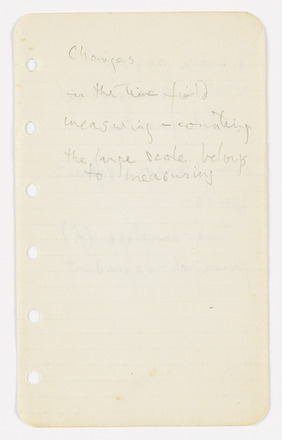 Changes
in the time field
measuring – counting
the large scale belongs
to measuring